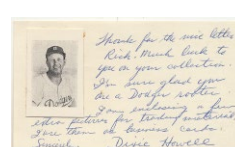 Thanks for the nice letter
Rick. Much luck to
you on your collection.
I'm sure glad your
are a Dodger rooter.
I am enclosing a few
extra pictures for trading material.
Dodgers
Dixie Howell